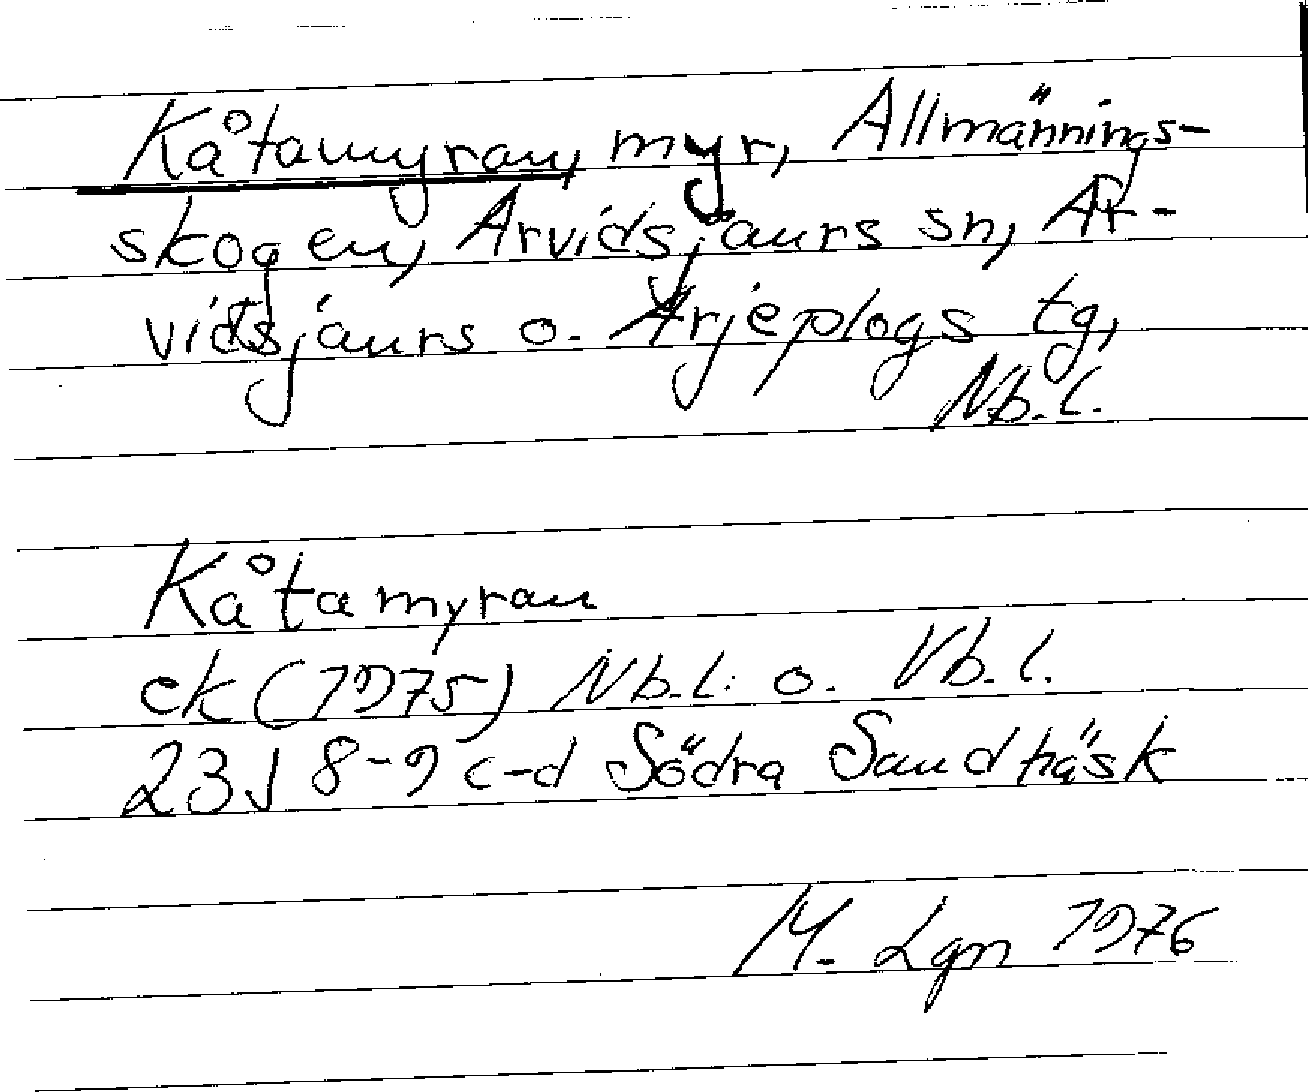 Kåtamyran, myr, Allmännings-
skogen, Arvidsjaurs sn, Ar-
vidsjaurs o. Arjeplogs tg,
Nb.l.
Kåtamyran
ek (1975) Nb.l. o. Vb.l.
23J 8-9 c-d Södra Sandträsk
M. Lgn 1976